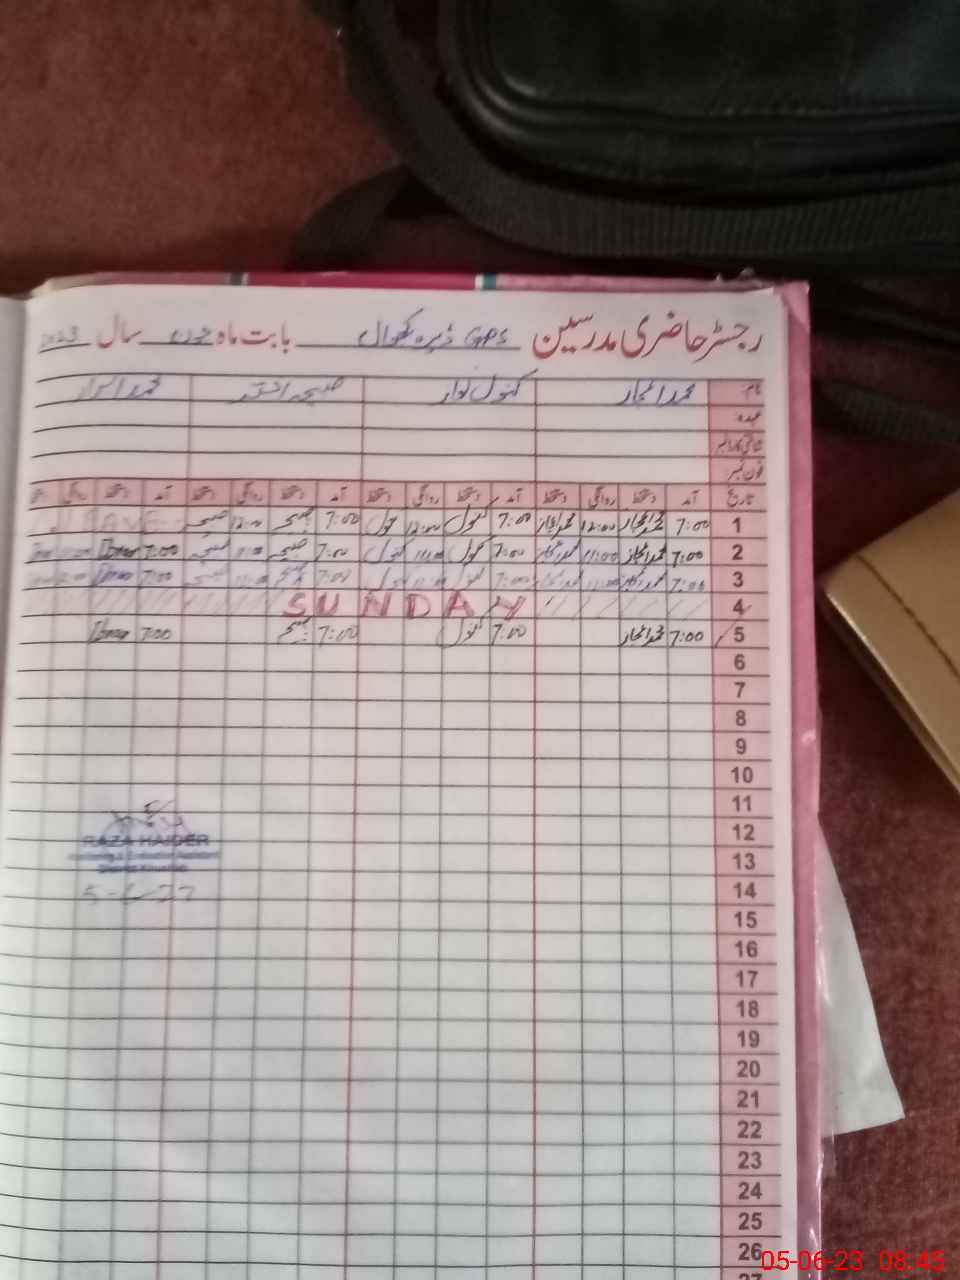 رجسٹر حاضری مدرسین GPS ڈیرہ بابت ماہ جون سال 2023
نام محمد اعجاز کنول صبیحہ اختر محمد
عہدہ
شناختی کارڈ نمبر
فون نمبر
تاریخ آمد دستخط روانگی دستخط آمد دستخط روانگی دستخط آمد دستخط روانگی دستخط آمد دستخط روانگی
1 7:00 محمد اعجاز 12:00 محمد اعجاز 7:00 کنول 12:00 کنول 7:00 صبیحہ 12:00 صبیحہ LEAVE
2 7:00 محمد اعجاز 11:00 محمد اعجاز 7:00 کنول 11:00 کنول 7:00 صبیحہ 11:00 صبیحہ 7:00
3 7:00 محمد اعجاز 11:00 محمد اعجاز 7:00 کنول 11:00 کنول 7:00 صبیحہ 11:00 صبیحہ 7:00
4 SUNDAY
5 7:00 محمد اعجاز 7:00 کنول 7:00 صبیحہ 7:00
6
7
8
9
10
11
12
RAZA HAIDER
13
Monitoring & Evaluation Assistant
District Khushab
14
5-6-23
15
16
17
18
19
20
21
22
23
24
25
26
27
05-06-23 08:45